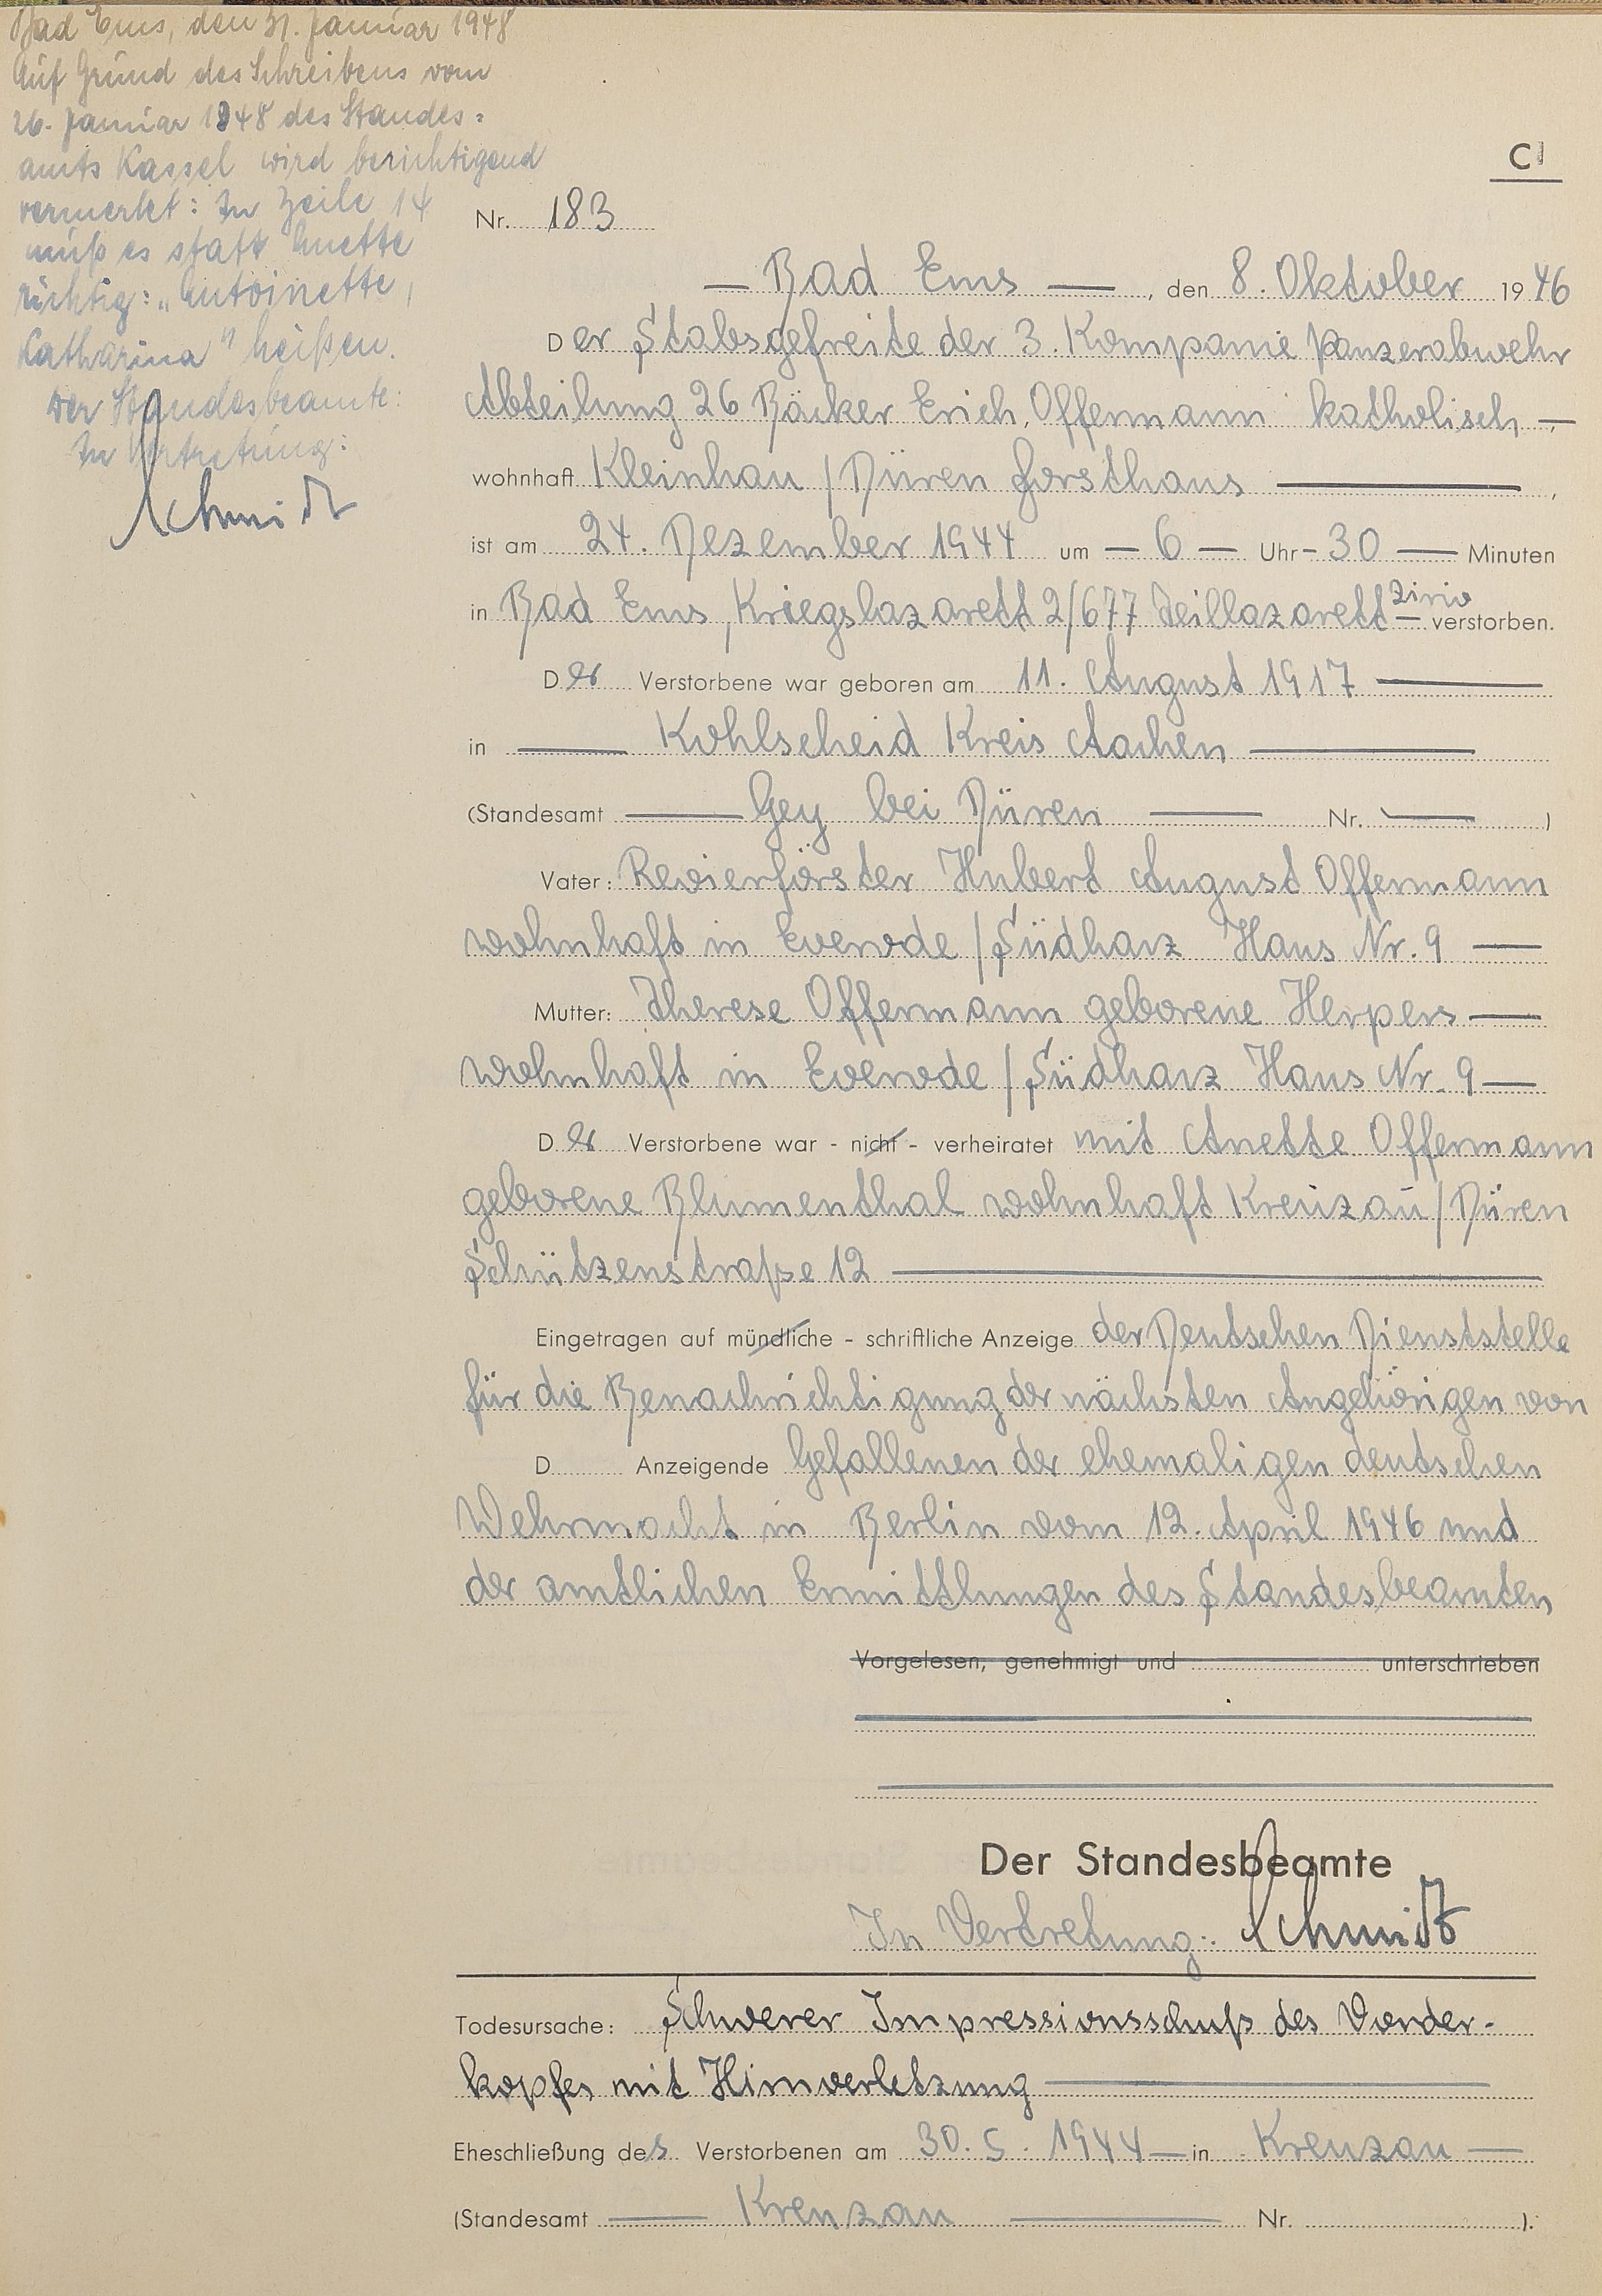 Bad Ems, den 31. Januar 1948
Auf Grund des Schreibens vom
26. Januar 1948 des Standes=
amts Kassel wird berichtigend
vermerkt: In Zeile 14
muß es statt Anette
richtig: „Antoinette,
Katharina" heißen.
Der Standesbeamte:
In Vertretung:
Schmidt
C
Nr. 183
— Bad Ems —, den 8. Oktober 1946
Der Stabsgefreite der 3. Kompanie Panzerabwehr
Abteilung 26 Bäcker Erich, Offermann katholisch —
wohnhaft Kleinhau / Düren Forsthaus —,
ist am 24. Dezember 1944 um — 6 — Uhr – 30 — Minuten
in Bad Ems, Kriegslazarett 2/677 Teillazarett — verstorben.
Der Verstorbene war geboren am 11. August 1917 —
in — Kohlscheid Kreis Aachen —
(Standesamt — Gey bei Düren — Nr. —)
Vater: Revierförster Hubert August Offermann
wohnhaft in Everode / Südharz Haus Nr. 9 —
Mutter: Therese Offermann geborene Herpers —
wohnhaft in Everode / Südharz Haus Nr. 9 —
Der Verstorbene war - nicht - verheiratet mit Anette Offermann
geborene Blumenthal wohnhaft Kreuzau / Düren
Schützenstraße 12 —
Eingetragen auf mündliche - schriftliche Anzeige der Deutschen Dienststelle
für die Benachrichtigung der nächsten Angehörigen von
D Anzeigende Gefallenen der ehemaligen deutschen
Wehrmacht in Berlin vom 12. April 1946 und
der amtlichen Ermittlungen des Standesbeamten
Vorgelesen, genehmigt und unterschrieben
Der Standesbeamte
In Vertretung: Schmidt
Todesursache: Schwerer Impressionsschuß des Vorder-
kopfes mit Hirnverletzung —
Eheschließung des Verstorbenen am 30. 5. 1944 — in Kreuzau —
(Standesamt — Kreuzau — Nr. ).